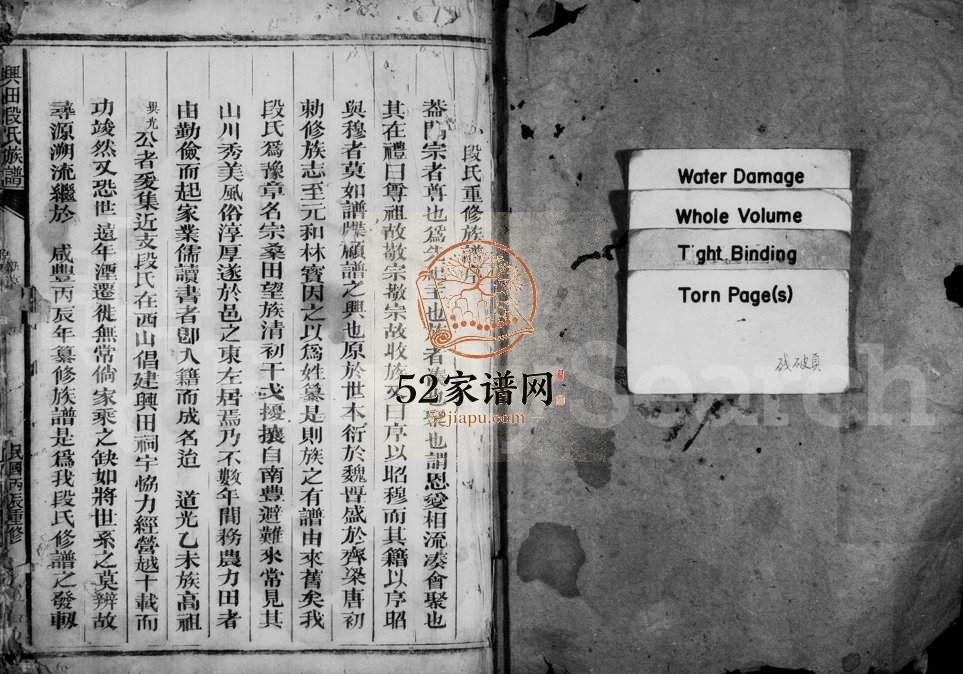 段氏重修族譜序
蓋聞宗者尊也爲先祖主也族者湊也聚也謂恩愛相流湊會聚也
其在禮曰尊祖故敬宗敬宗故收族又曰序以昭穆而其籍以序昭
與穆者莫如譜牒顧譜之興也原於世本衍於魏晉盛於齊梁唐初
勅修族志至元和林寶因之以爲姓纂是則族之有譜由來舊矣我
段氏爲豫章名宗桑田望族清初干戈擾攘自南豐避難來常見其
山川秀美風俗淳厚遂於邑之東左居焉乃不數年間務農力田者
由勤儉而起家業儒讀書者卽入籍而成名迨 道光乙未族高祖
異光公者爰集近支段氏在西山倡建興田祠宇恊力經營越十載而
功竣然又恐世遠年湮遷徙無常倘家乘之缺如將世系之莫辨故
尋源溯流繼於 咸豐丙辰年纂修族譜是爲我段氏修譜之發軔
興田段氏族譜
民國丙辰重修
Water Damage
Whole Volume
Tight Binding
Torn Page(s)
残破頁
52家谱网
jiapu.com
Search